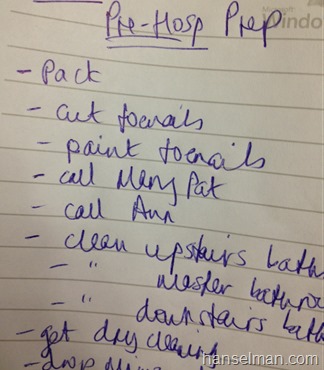 Microsoft
Windo
Pre-Hosp Prep
- Pack
- cut toenails
- paint toenails
- call Mary Pat
- call Ann
- clean upstairs bath
- " master bathroo
- " downstairs bath
- get dry cleaning
- drop
hanselman.com